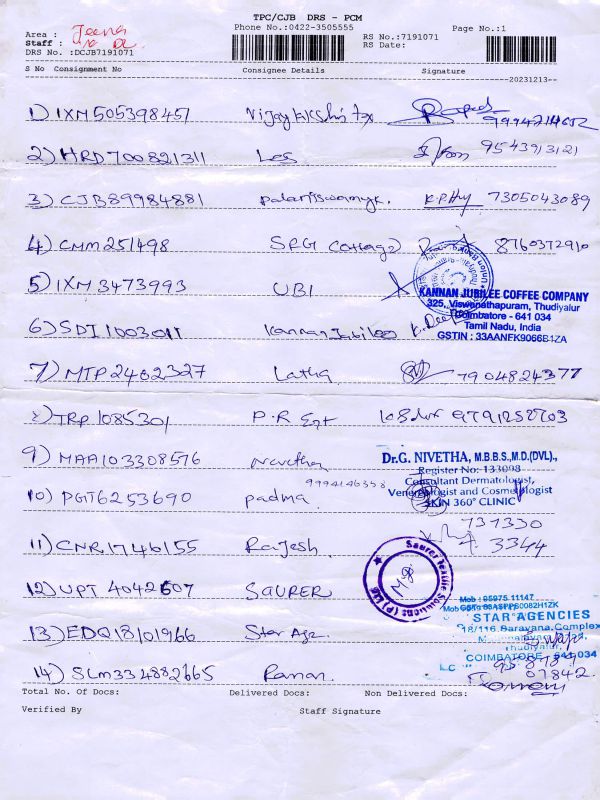 TPC/CJB DRS - PCM
Phone No.:0422-3505555
Page No.:1
Area :
Staff :
DRS No :DCJB7191071
RS No.:7191071
RS Date:
S No Consignment No Consignee Details Signature
20231213--
1) IXM505398457 9994214652
2) HRD700821311 Les 9543913121
3) CJB89984881 K.P.Hy 7305043089
4) CMM251498 SRG Cottage 8760372910
5) IXM3473993 UBI
KANNAN JUBILEE COFFEE COMPANY
325, Viswanathapuram, Thudiyalur
Coimbatore - 641 034
Tamil Nadu, India
GSTIN : 33AANFK9066B1ZA
6) SDI1003011 Kannan Jubilee K. Deepa
7) MTP2402327 Latha 7904824377
8) TRP1085301 P.R Egt
9) MAA103308576 Nivetha
Dr.G. NIVETHA, M.B.B.S.,M.D.(DVL).,
Register No: 133098
Consultant Dermatologist,
Venereologist and Cosmetologist
SKIN 360° CLINIC
10) PGT6253690 padma 9994146358
737330
3344
11) CNR1746155 Rajesh
Saurer Textile Solutions (P) Ltd
12) UPT 4042607 SAURER
Mob : 95975 11147
STAR AGENCIES
18/116, Narayana Complex
Thudiyalur,
COIMBATORE - 641 034
13) EDQ18101966 Star Age.
07842
14) SLM334882665 Raman.
Total No. Of Docs: Delivered Docs: Non Delivered Docs:
Verified By Staff Signature